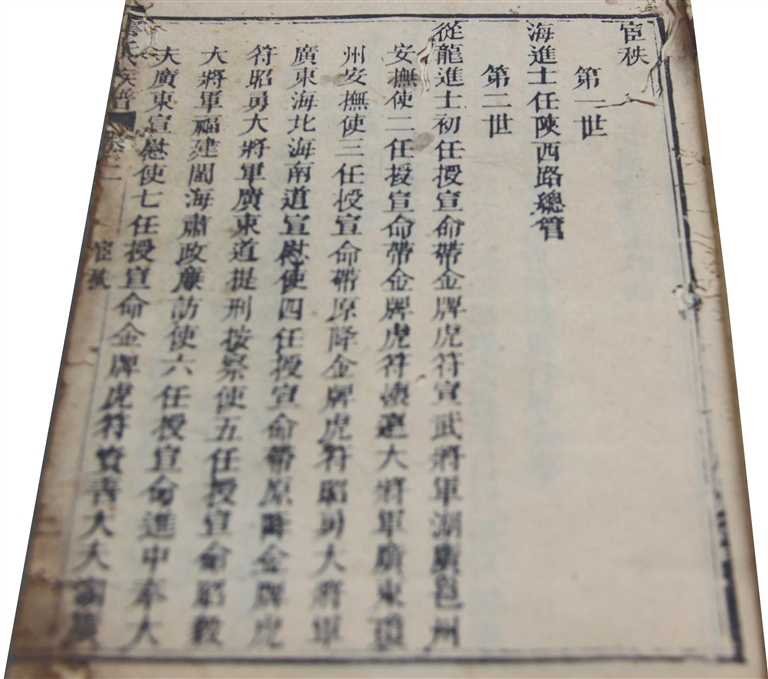 宦秩
第一世
海進士任陝西路總管
第二世
從龍進士初任授宣命帶金牌虎符宣武將軍湖廣邕州
安撫使二任授宣命帶金牌虎符懷遠大將軍廣東瓊
州安撫使三任授宣命帶原降金牌虎符昭勇大將軍
廣東海北海南道宣慰使四任授宣命帶原降金牌虎
符昭勇大將軍廣東道提刑按察使五任授宣命昭毅
大將軍福建閩海肅政廉訪使六任授宣命進中奉大
夫廣東宣慰使七任授宣命金牌虎符資善大夫湖廣
氏族譜 卷二 宦秩